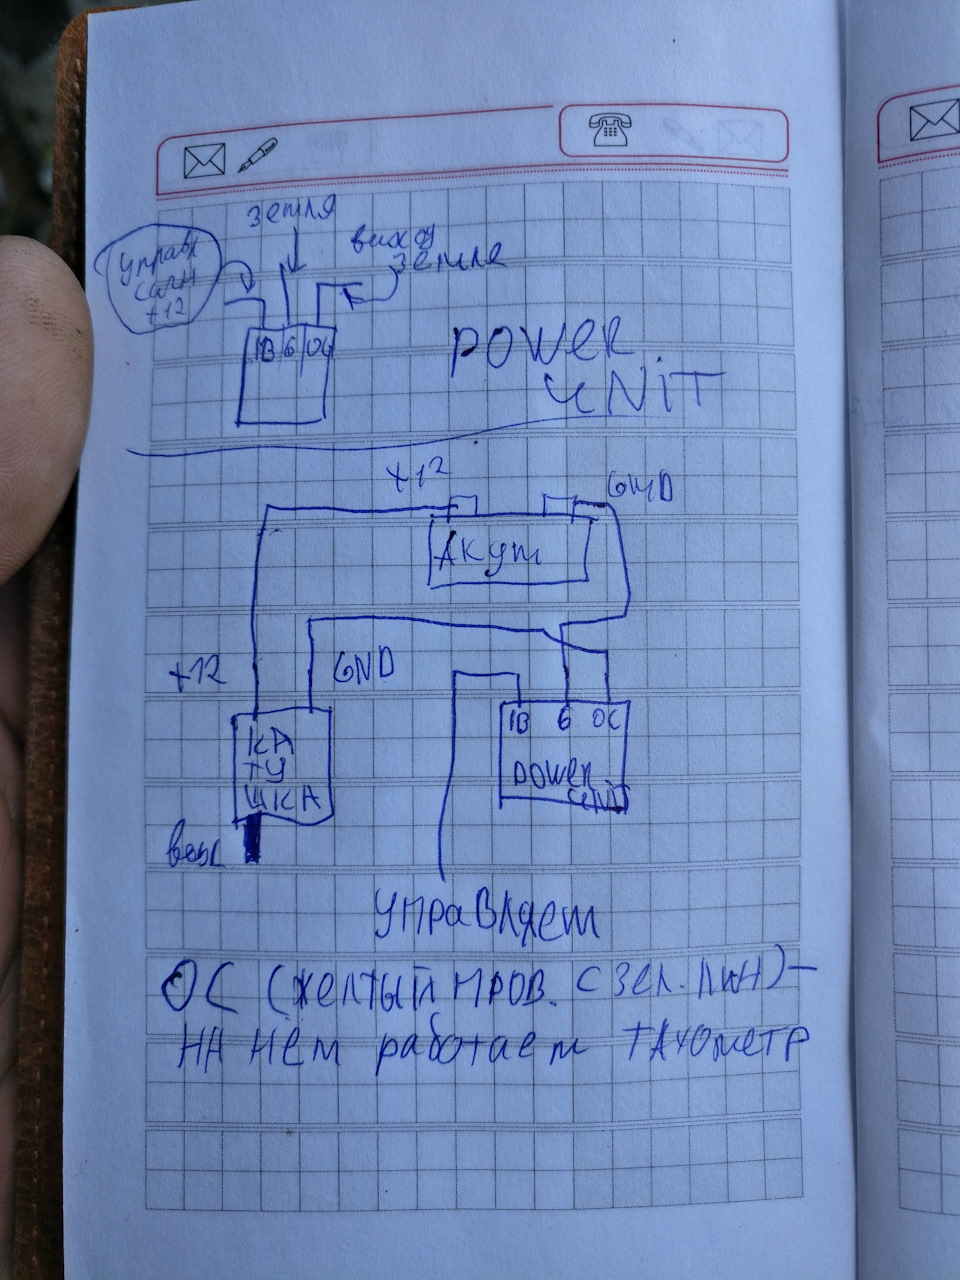 земля
выход
земля
управл
сигн
+12
IB G OC
POWER
UNIT
+12
GND
Акум
+12
GND
КА
ТУ
ШКА
IB G OC
power
UNIT
управляет
ОС (желтый пров. с зел. лин) –
на нём работает тахометр